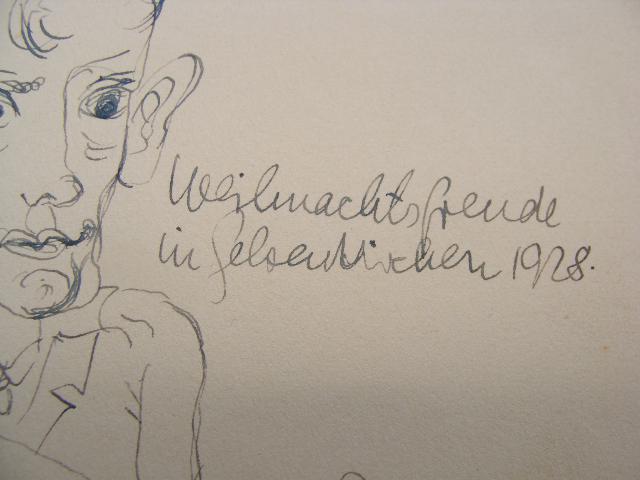 Weihnachtsfreude
in Gelsenkirchen 1928.